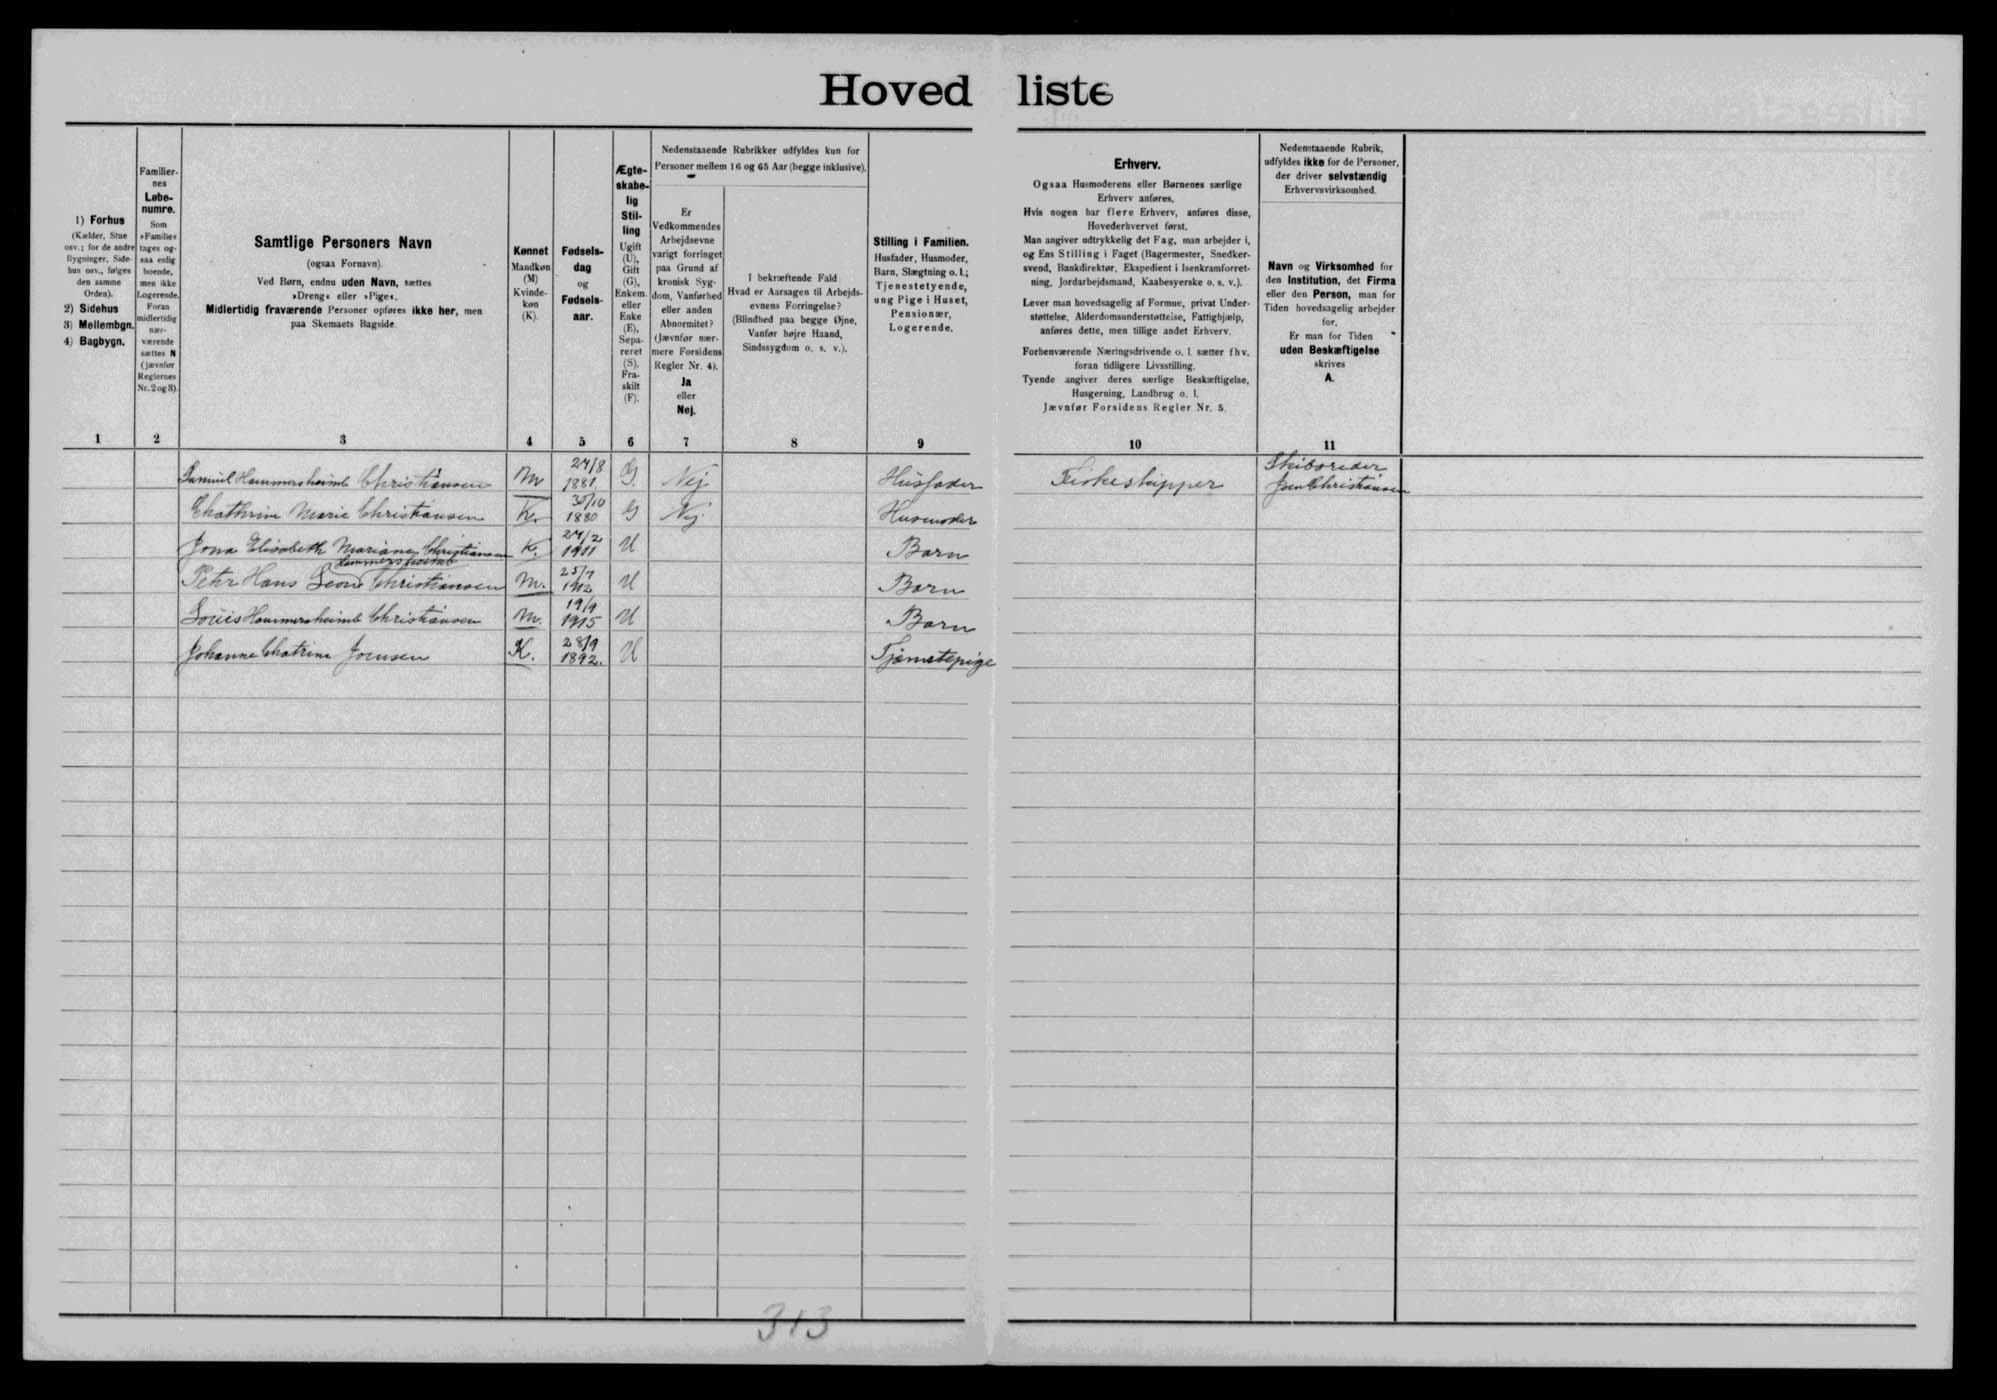 Hovedliste
1) Forhus
(Kælder, Stue
osv.; for de andre
Bygninger, Side-
hus osv., følges
den samme
Orden).
2) Sidehus
3) Mellembgn.
4) Bagbygn.
Familier-
nes
Løbe-
numre.
Som
»Familie«
tages og-
saa enlig
boende,
men ikke
Logerende.
Foran
midlertidig
nær-
værende
sættes N
(jævnfør
Reglernes
Nr. 2 og 3).
Samtlige Personers Navn
(ogsaa Fornavn).
Ved Børn, endnu uden Navn, sættes
»Dreng« eller »Pige«.
Midlertidig fraværende Personer opføres ikke her, men
paa Skemaets Bagside.
Kønnet
Mandkøn
(M)
Kvinde-
køn
(K).
Fødsels-
dag
og
Fødsels-
aar.
Ægte-
skabe-
lig
Stil-
ling
Ugift
(U),
Gift
(G),
Enkem.
eller
Enke
(E),
Sepa-
reret
(S),
Fra-
skilt
(F).
Nedenstaaende Rubrikker udfyldes kun for
Personer mellem 16 og 65 Aar (begge inklusive).
Er
Vedkommendes
Arbejdsevne
varigt forringet
paa Grund af
kronisk Syg-
dom, Vanførhed
eller anden
Abnormitet?
(Jævnfør nær-
mere Forsidens
Regler Nr. 4).
Ja
eller
Nej.
I bekræftende Fald
Hvad er Aarsagen til Arbejds-
evnens Forringelse?
(Blindhed paa begge Øjne,
Vanfør højre Haand,
Sindssygdom o. s. v.).
Stilling i Familien.
Husfader, Husmoder,
Barn, Slægtning o. l.;
Tjenestetyende,
ung Pige i Huset,
Pensionær,
Logerende.
Erhverv.
Ogsaa Husmoderens eller Børnenes særlige
Erhverv anføres.
Hvis nogen har flere Erhverv, anføres disse,
Hovederhvervet først.
Man angiver udtrykkelig det Fag, man arbejder i,
og Ens Stilling i Faget (Bagermester, Snedker-
svend, Bankdirektør, Ekspedient i Isenkramforret-
ning, Jordarbejdsmand, Kaabesyerske o. s. v.).
Lever man hovedsagelig af Formue, privat Under-
støttelse, Alderdomsunderstøttelse, Fattighjælp,
anføres dette, men tillige andet Erhverv.
Forhenværende Næringsdrivende o. l. sætter fhv.
foran tidligere Livsstilling.
Tyende angiver deres særlige Beskæftigelse,
Husgerning, Landbrug o. l.
Jævnfør Forsidens Regler Nr. 5.
Nedenstaaende Rubrik,
udfyldes ikke for de Personer,
der driver selvstændig
Erhvervsvirksomhed.
Navn og Virksomhed for
den Institution, det Firma
eller den Person, man for
Tiden hovedsagelig arbejder
for.
Er man for Tiden
uden Beskæftigelse
skrives
A.
1 2 3 4 5 6 7 8 9 10 11
Samuel Hammershaimb Christiansen M 24/8 1881. G. Nej Husfader Fiskeskipper Skibsreder Jen Christiansen
Chathrine Marie Christiansen K. 30/10 1880 G Nej. Husmoder
Jona Elisabeth Mariane Christiansen K. 24/2 1911 U Barn
Hammershaimb
Petr Hans Leon Christiansen M. 25/7 1912 U Barn
Louis Hammershaimb Christiansen M. 19/9 1915 U Barn
Johanne Chatrine Joensen K. 28/9 1892. U Tjenestepige
313